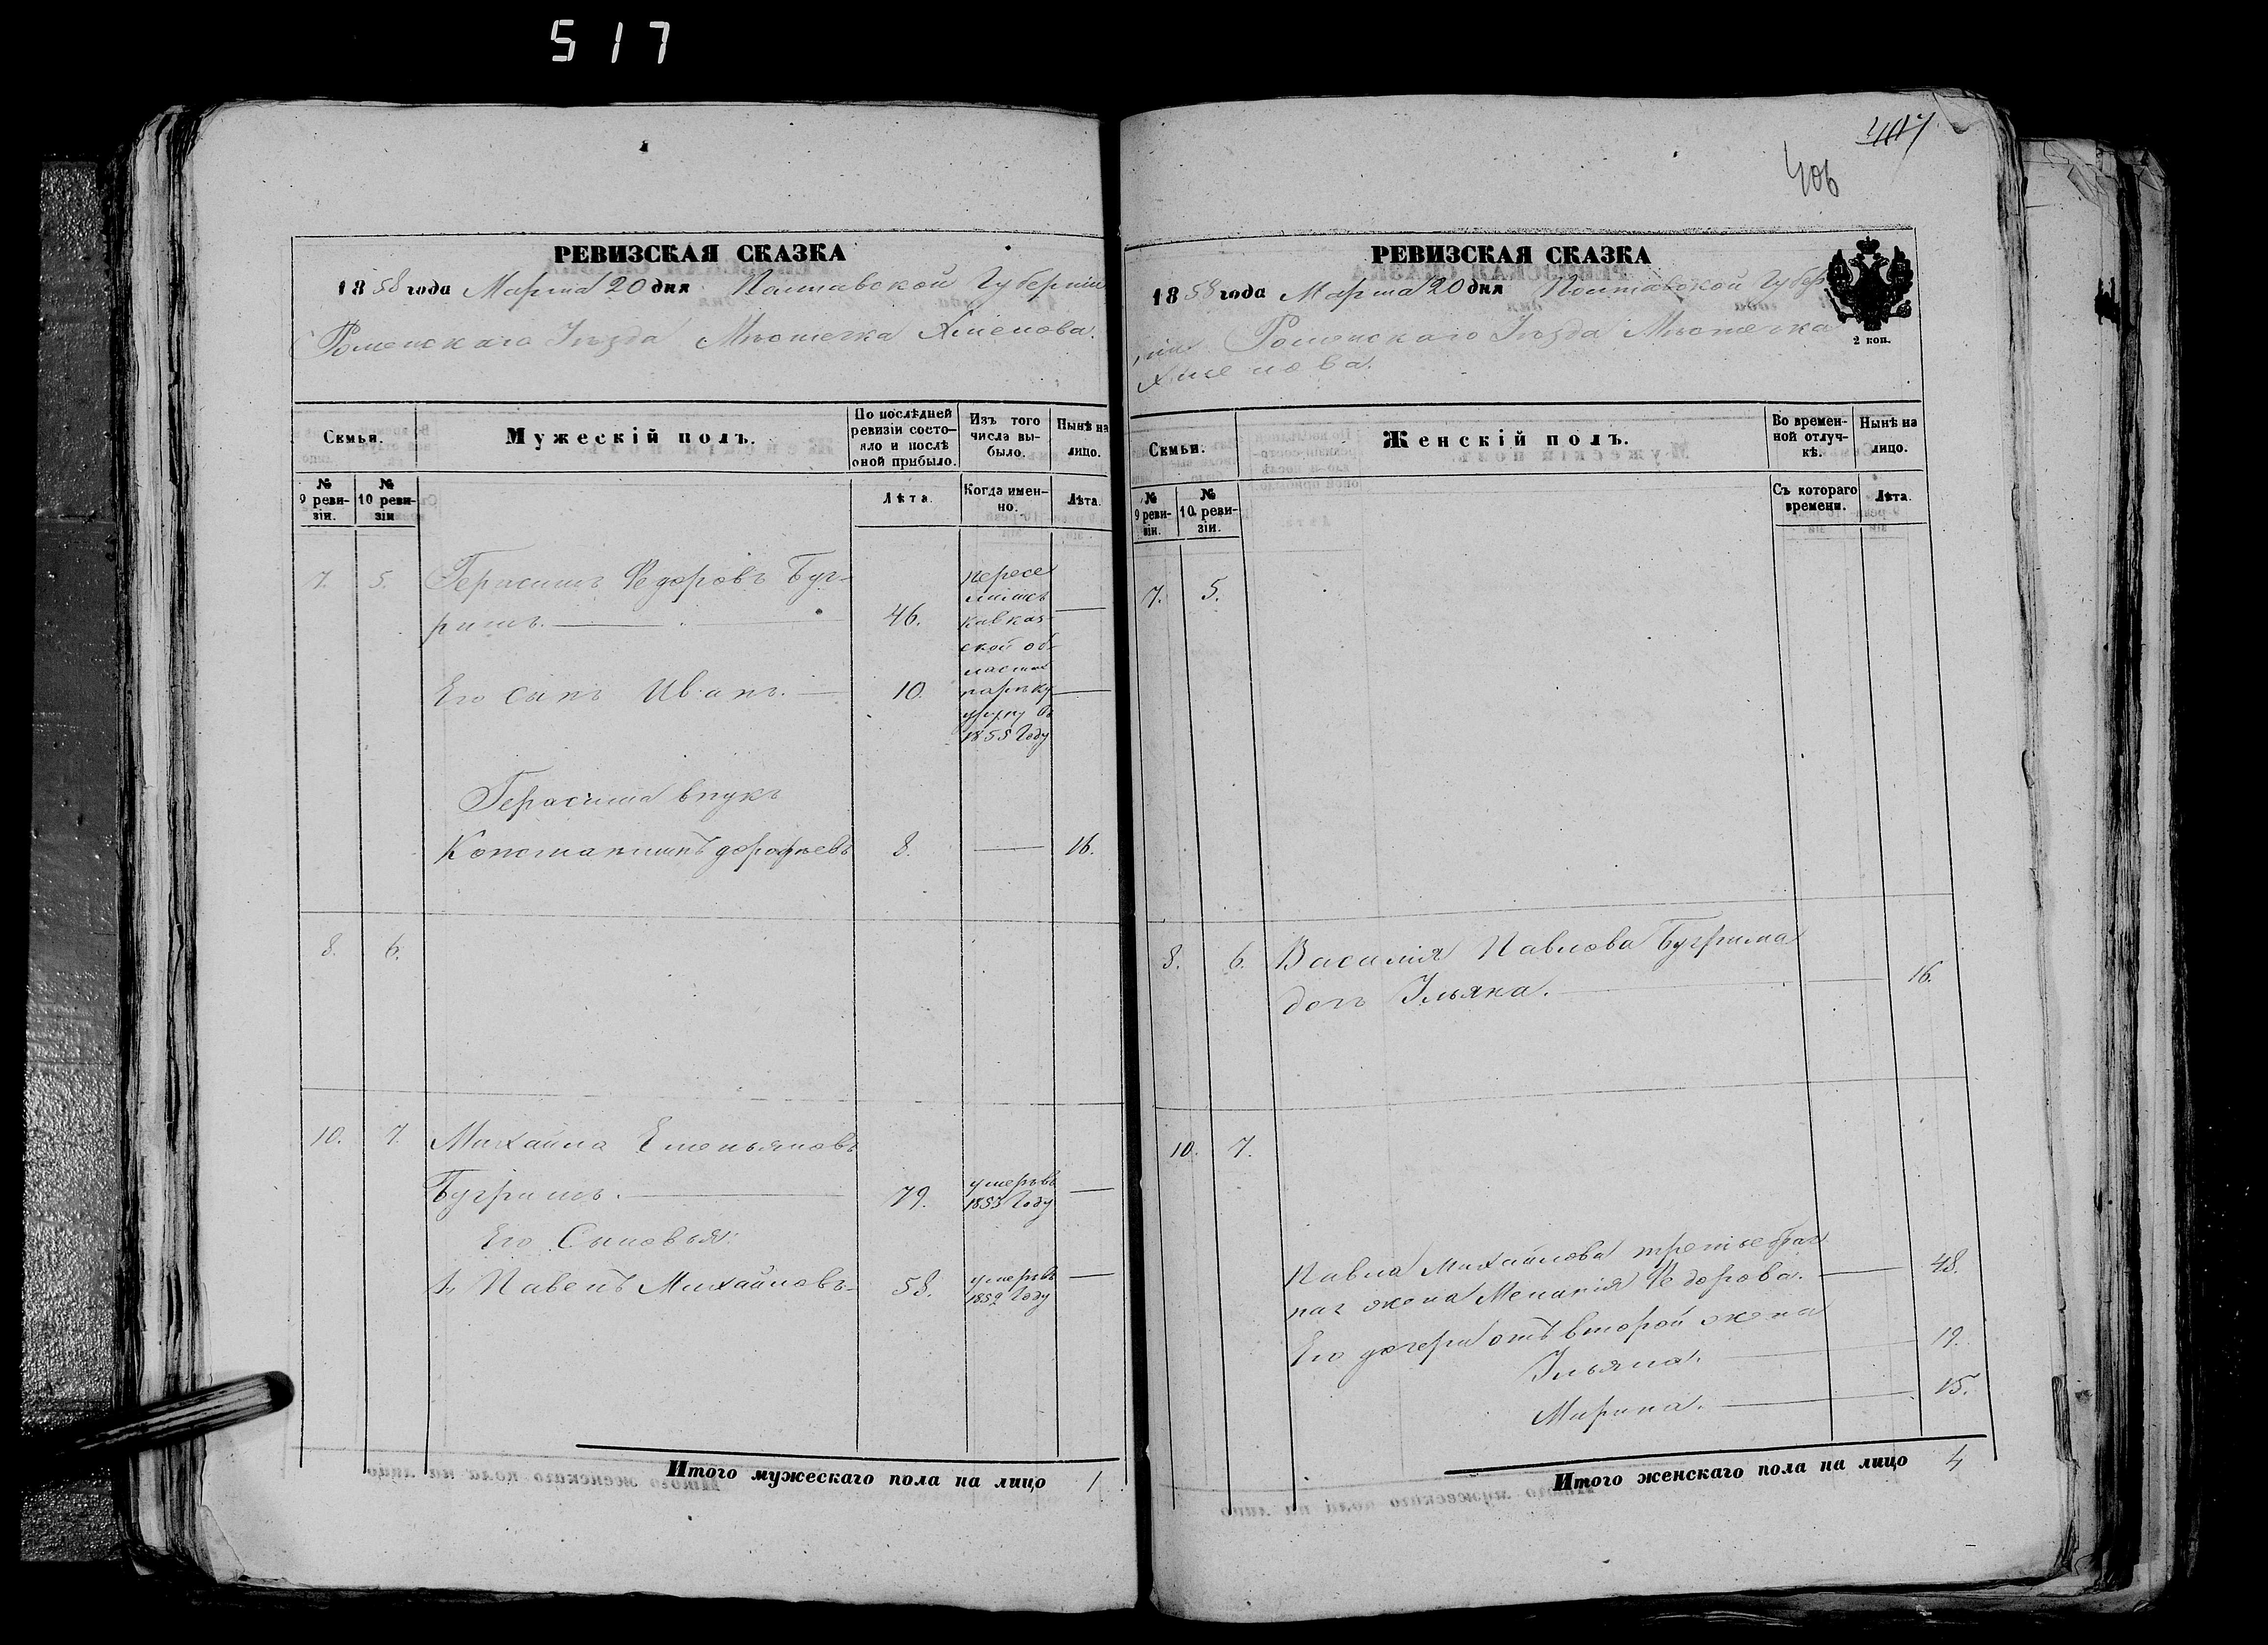 517
РЕВИЗСКАЯ СКАЗКА
1858 года Марта 20 дня Полтавской Губерніи
Роменскаго Уѣзда Мѣстечка Хмелова.
Семьи.
Мужескій полъ.
По послѣдней ревизіи состояло и послѣ оной прибыло.
Изъ того числа выбыло.
Нынѣ на лицо.
№ 9 ревизіи.
№ 10 ревизіи
Лѣта.
Когда именно.
Лѣта.
7. 5. Герасимъ Федоровъ Буг-
римъ. 46.
пересе
лился
Кавказ
ской об-
ласти
1855 Году
Его сынъ Иванъ. 10.
Герасима внукъ
Константинъ Дорофѣевъ 8. 16.
8. 6.
10. 7. Михайла Емельяновъ
Бугримъ. 79. умеръ въ 1853 Году
Его Сыновья:
1, Павелъ Михайловъ 58. умеръ въ 1852 Году
Итого мужескаго пола на лицо 1
407
406
РЕВИЗСКАЯ СКАЗКА
1858 года Марта 20 дня Полтавской Губер
ніи Роменскаго Уѣзда Мѣстечка
Хмелова.
2 коп.
Семьи.
Женскій полъ.
Во временной отлучкѣ.
Нынѣ на лицо.
№ 9 ревизіи.
№ 10 ревизіи.
Съ котораго времени.
Лѣта.
7. 5.
8. 6. Василія Павлова Бугрима
дочь Ульяна. 16.
10. 7.
Павла Михайлова третьебрач
ная жена Меланія Федорова. 48.
Его дочери отъ второй жены
Ульяна. 19.
Марина. 15.
Итого женскаго пола на лицо 4